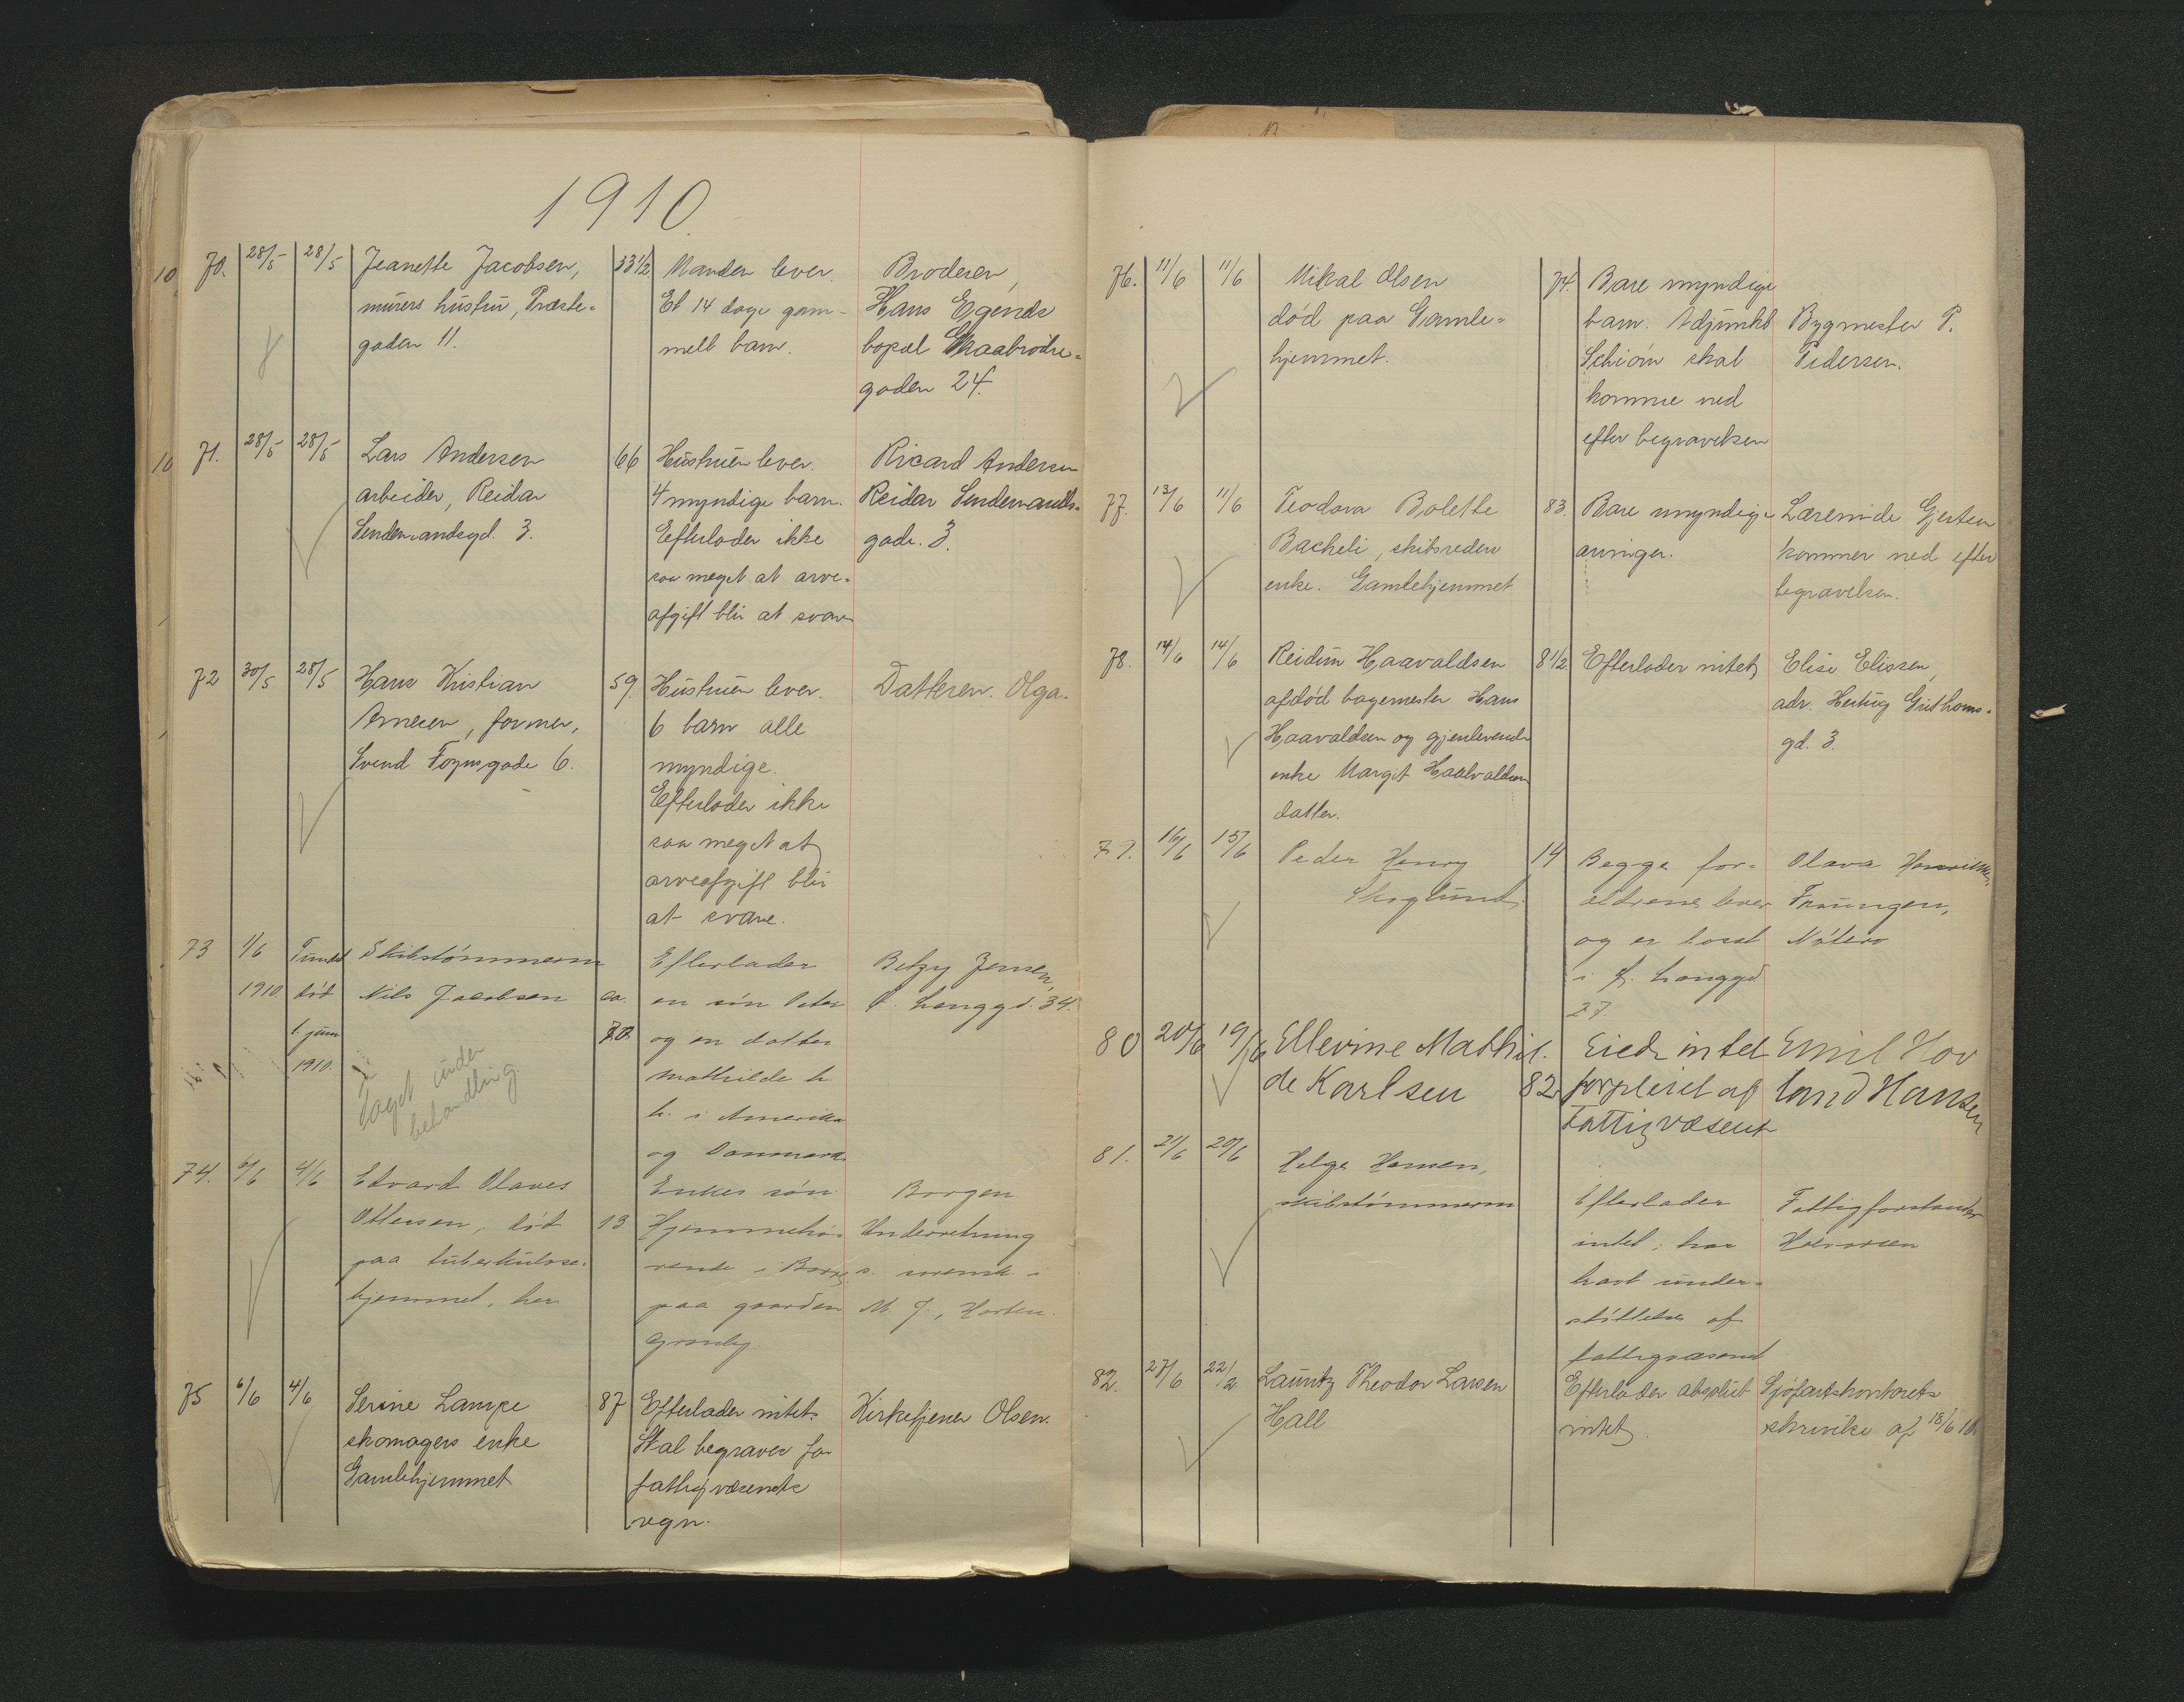 1910
10 70. 28/5 28/5 Jeanette Jacobsen, 33 1/2 Manden lever. Broderen,
murers hustru, Præste- Et 14 dage gam- Hans Egends
gaden 11. melt barn. bopæl Graabrødre-
gaden 24.
10 71. 28/5 28/5 Lars Andersen 66 Hustruen lever. Ricard Andersen
arbeider, Reidar 4 myndige barn. Reidar Sendemands-
Sendemandsgd. 3. Efterlader ikke gade. 3.
saa meget at arve-
afgift blir at svare
72 30/5 28/5 Hans Kristian 59. Hustruen lever. Datteren Olga.
Arnesen, former, 6 barn alle
Svend Foynsgade 6. myndige.
Efterlader ikke
saa meget at
arveafgift blir
at svare.
73 1/6 Fundet Skibstømmerm Efterlader Betzy Jensen,
1910. død Nils Jacobsen ca. en søn Peter Langgd. 34.
1. juni 70 og en datter
1910. Mathilde
taget under behandling i Amerika
og Danmark
74. 6/6 4/6 Edvard Olaves Enkes søn Borgen
Ottersen, død 13. Hjemmehø- Underretning
paa tuberkulose- rende i Borre s.
hjemmet, her paa gaarden M. J., Horten.

75 6/6 4/6 Serine Lampe 87 Efterlader intet. Kirketjener Olsen.
skomagers enke Skal begraves for
Gamlehjemmet fattigvæsenets
regn.
76. 11/6 11/6 Mikal Olsen 74. Bare myndige
død paa Gamle- barn. Adjunkt Bygmester P.
hjemmet. Schiørn skal Pedersen.
komme ned
efter begravelsen
77. 13/6 11/6 Teodora Bolette 83. Bare myndige Lærerinde Gjertsen
Bacheli, skibsreders arvinger. kommer ned efter
enke. Gamlehjemmet begravelsen.
78. 14/6 14/6 Reidun Haavaldsen 8 1/2 Efterlader intet Elise Elissen,
afdød bagermester Hans adr. Hertug Guthorms-
Haavaldsen og gjenlevende gd. 3.
enke Margit Haavaldsen
datter.
79. 16/6 15/6 Peder Henry 14 Begge for- Olava Henriksen
Skoglund. ældrene lever Træningen,
og er bosat Nøterø
i Langgd
27
80 20/6 19/6 Ellevine Mathil- Eiede intet Emil Hov
de Karlsen 82 forpleiet af land Hansen
Fattigvæsenet
81. 21/6 20/6 Helge Hansen,
skibstømmerm Efterlader Fattigforstander
intet; har Halvorsen
havt under-
støttelse af
fattigvæsenet
82. 27/6 22/2 Lauritz Theodor Larsen Efterlader absolut Sjøfartskontorets
Hall intet. skrivelse af 18/6 10.